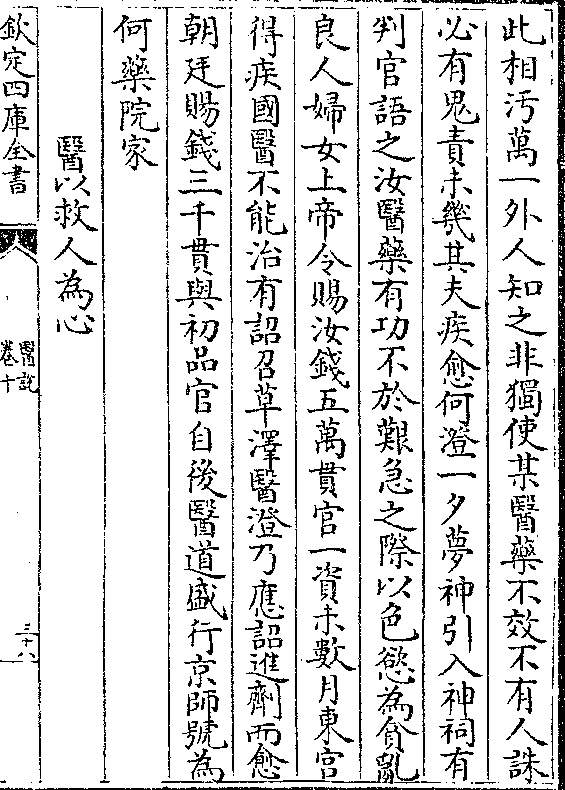 此相汚萬一外人知之非獨使某醫藥不效不有人誅
必有鬼責未幾其夫疾愈何澄一夕夢神引入神祠有
判官語之汝醫藥有功不於艱急之際以色慾為貪亂
良人婦女上帝令賜汝錢五萬貫官一資未數月東宮
得疾國醫不能治有詔召草澤醫澄乃應詔進劑而愈
朝廷賜錢三千貫與初品官自後醫道盛行京師號為
何藥院家
醫以救人為心
欽定四庫全書
醫說
卷十
三十八